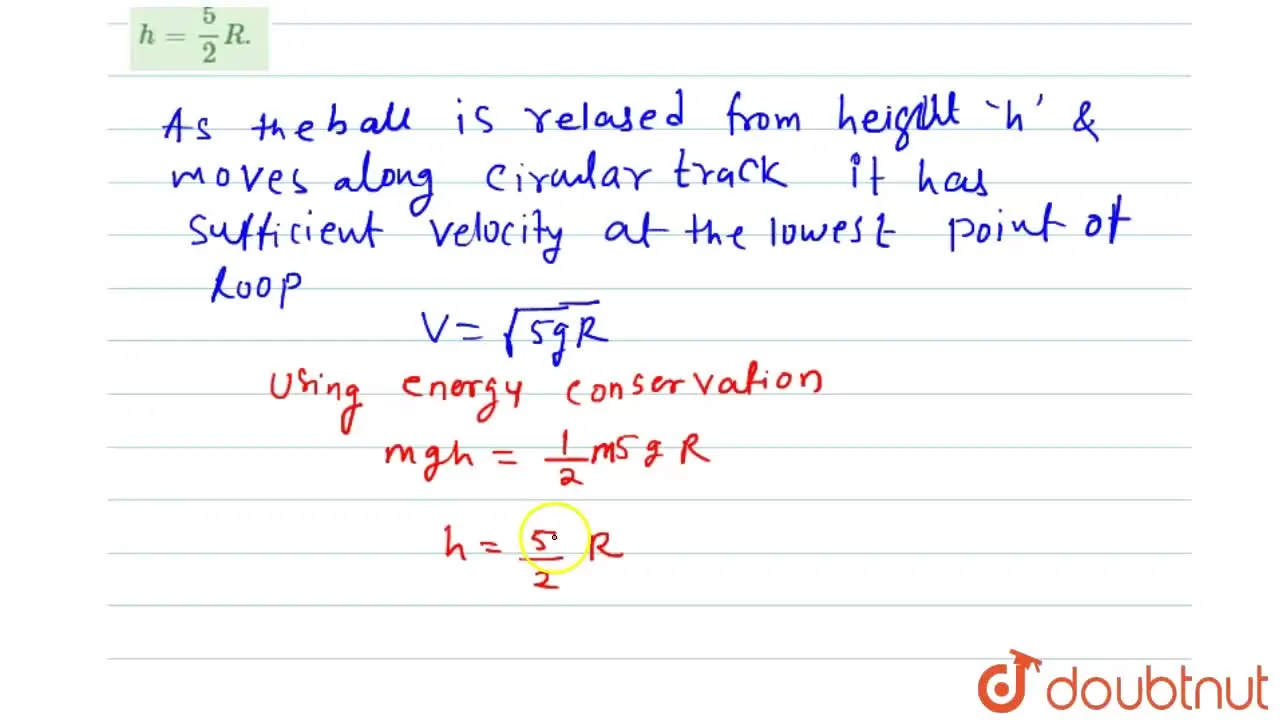 h = 5/2 R.
As the ball is relased from height 'h' &
moves along circular track it has
sufficient velocity at the lowest point of
Loop
V = √5gR
Using energy conservation
mgh = 1/2 m5gR
h = 5/2 R
doubtnut